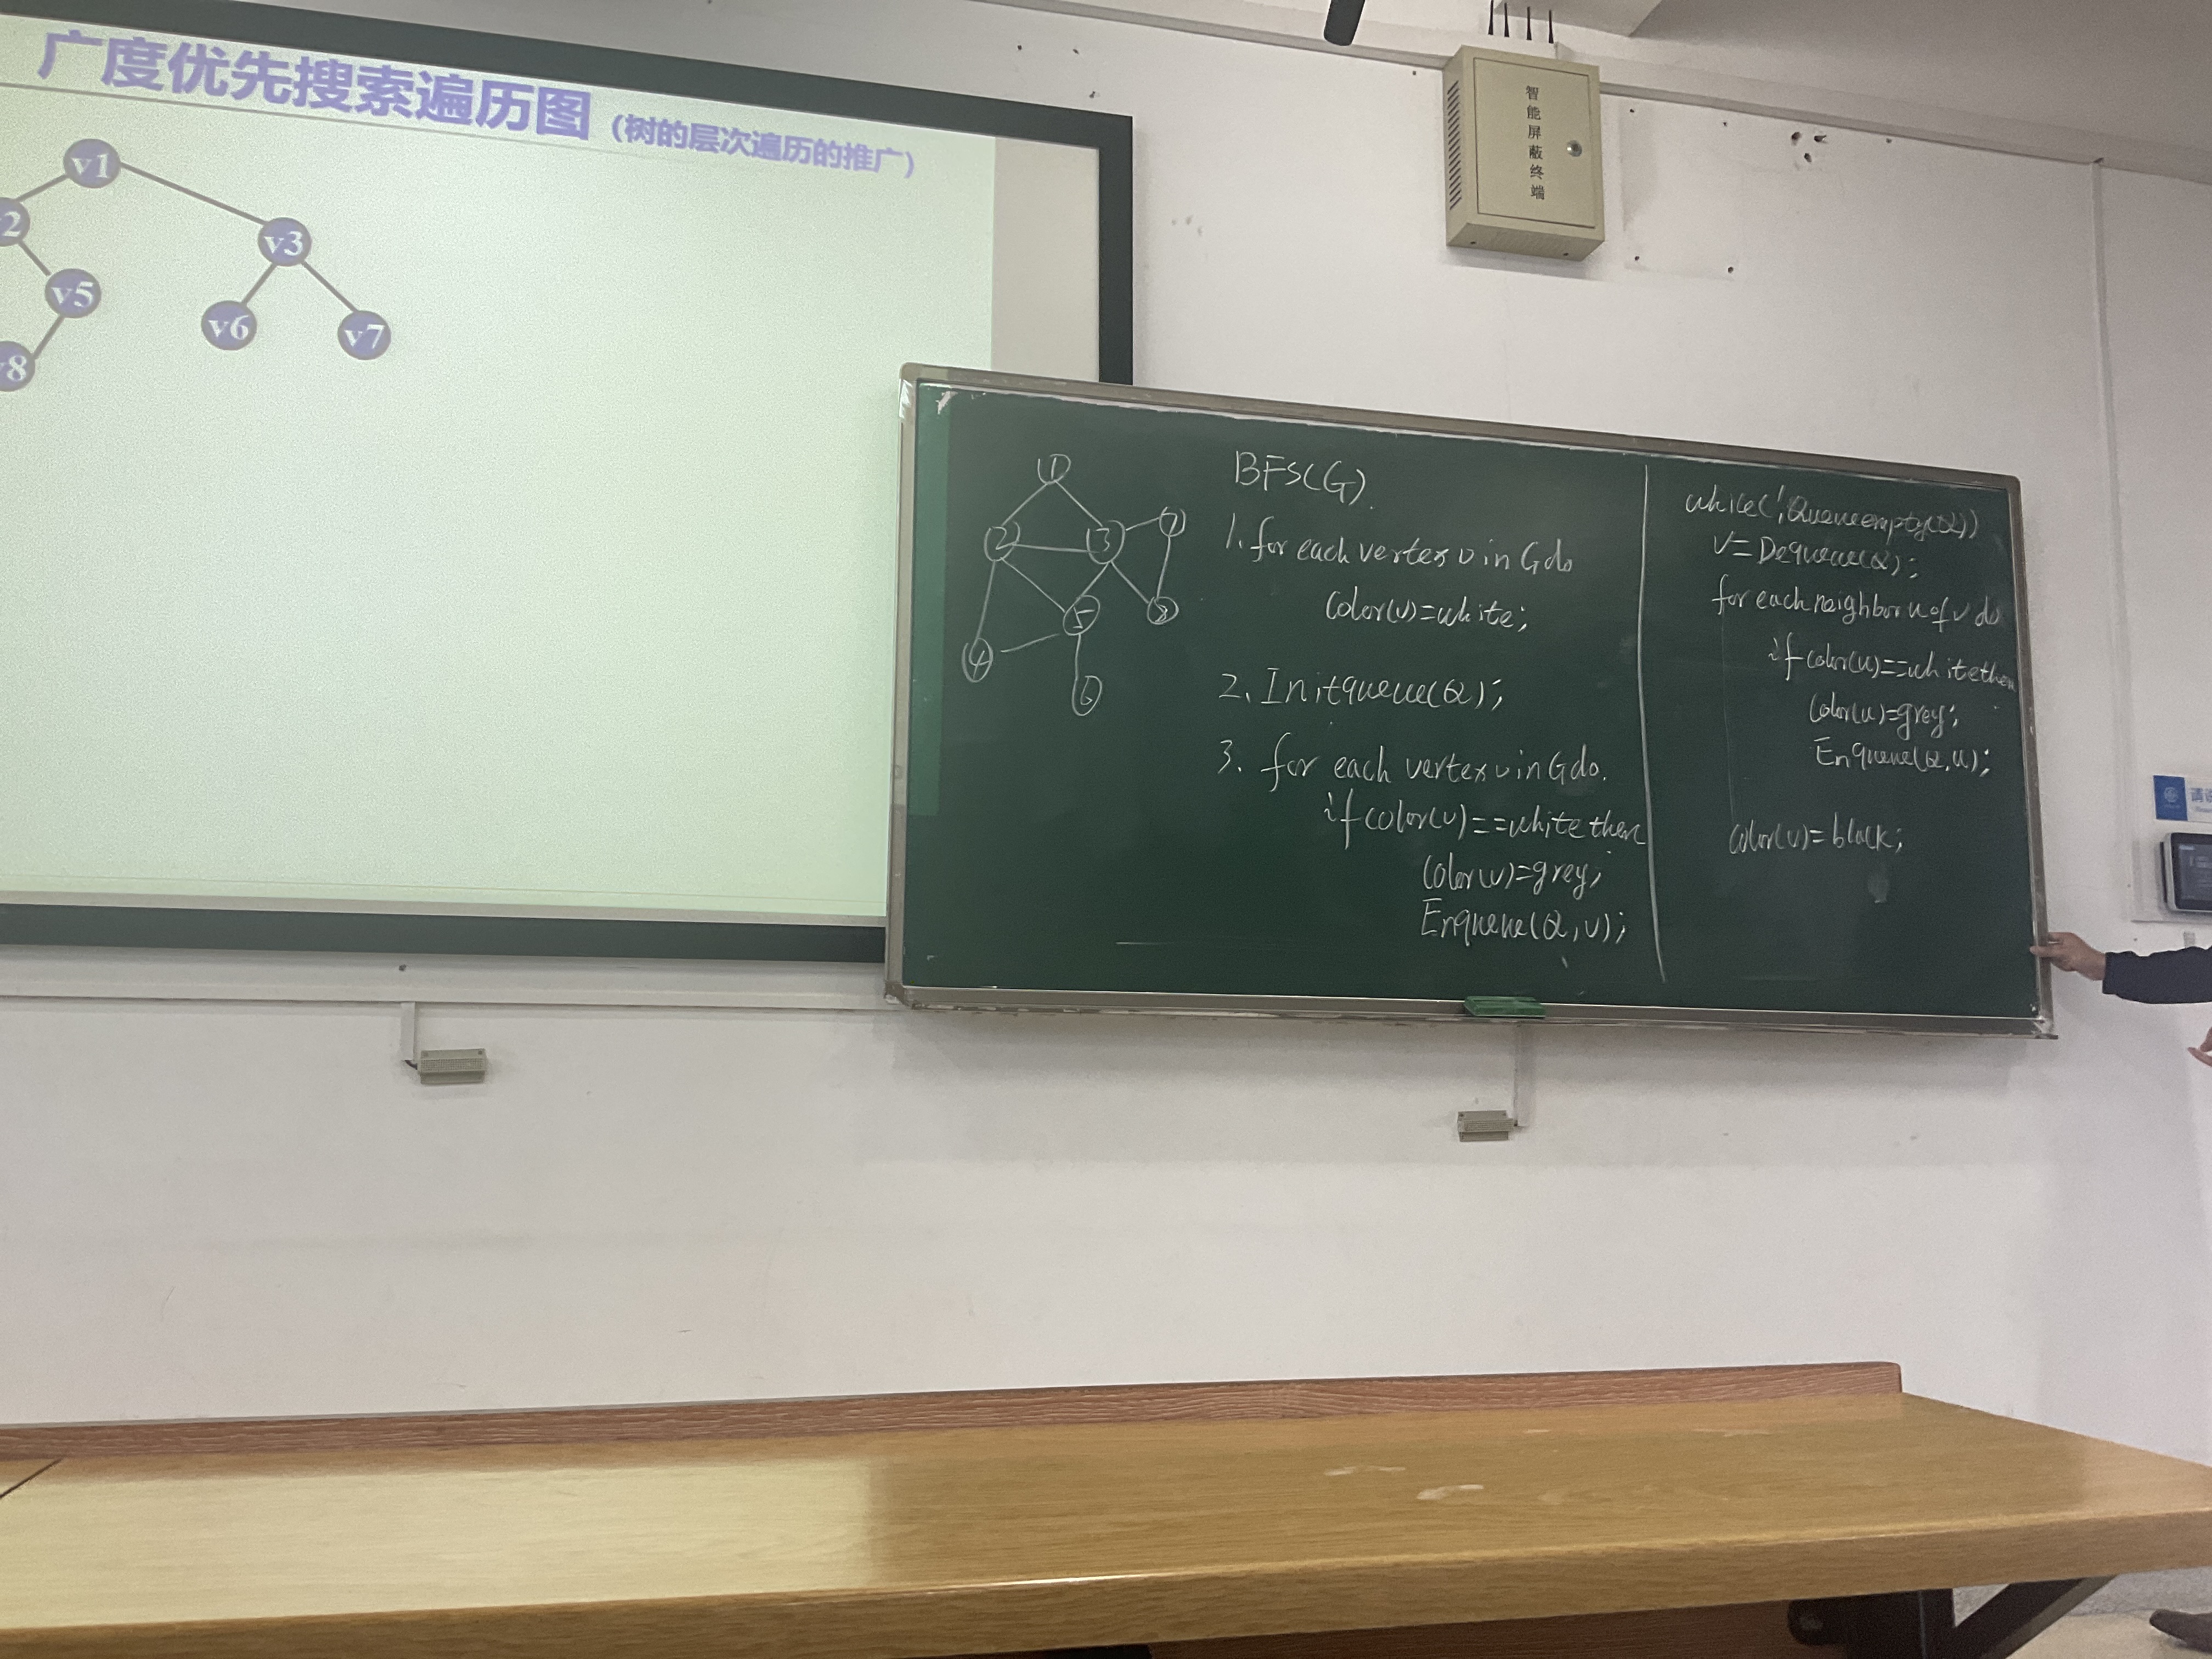 广度优先搜索遍历图(树的层次遍历的推广)
v1
2
v3
v5
v6
v7
v8
智能屏蔽终端
1
2
3
7
5
8
4
6
BFS(G).
1. for each vertex v in G do
Color(v)=white;
2. Initqueue(Q);
3. for each vertex v in G do.
if color(v)==white then
Color(v)=grey;
Enqueue(Q,v);
while(!Queueempty(Q))
v=Dequeue(Q);
for each neighbor u of v do
if color(u)==white then
Color(u)=grey;
Enqueue(Q,u);
Color(v)=black;